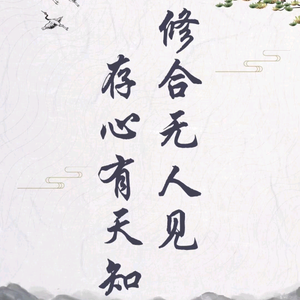 修合无人见
存心有天知